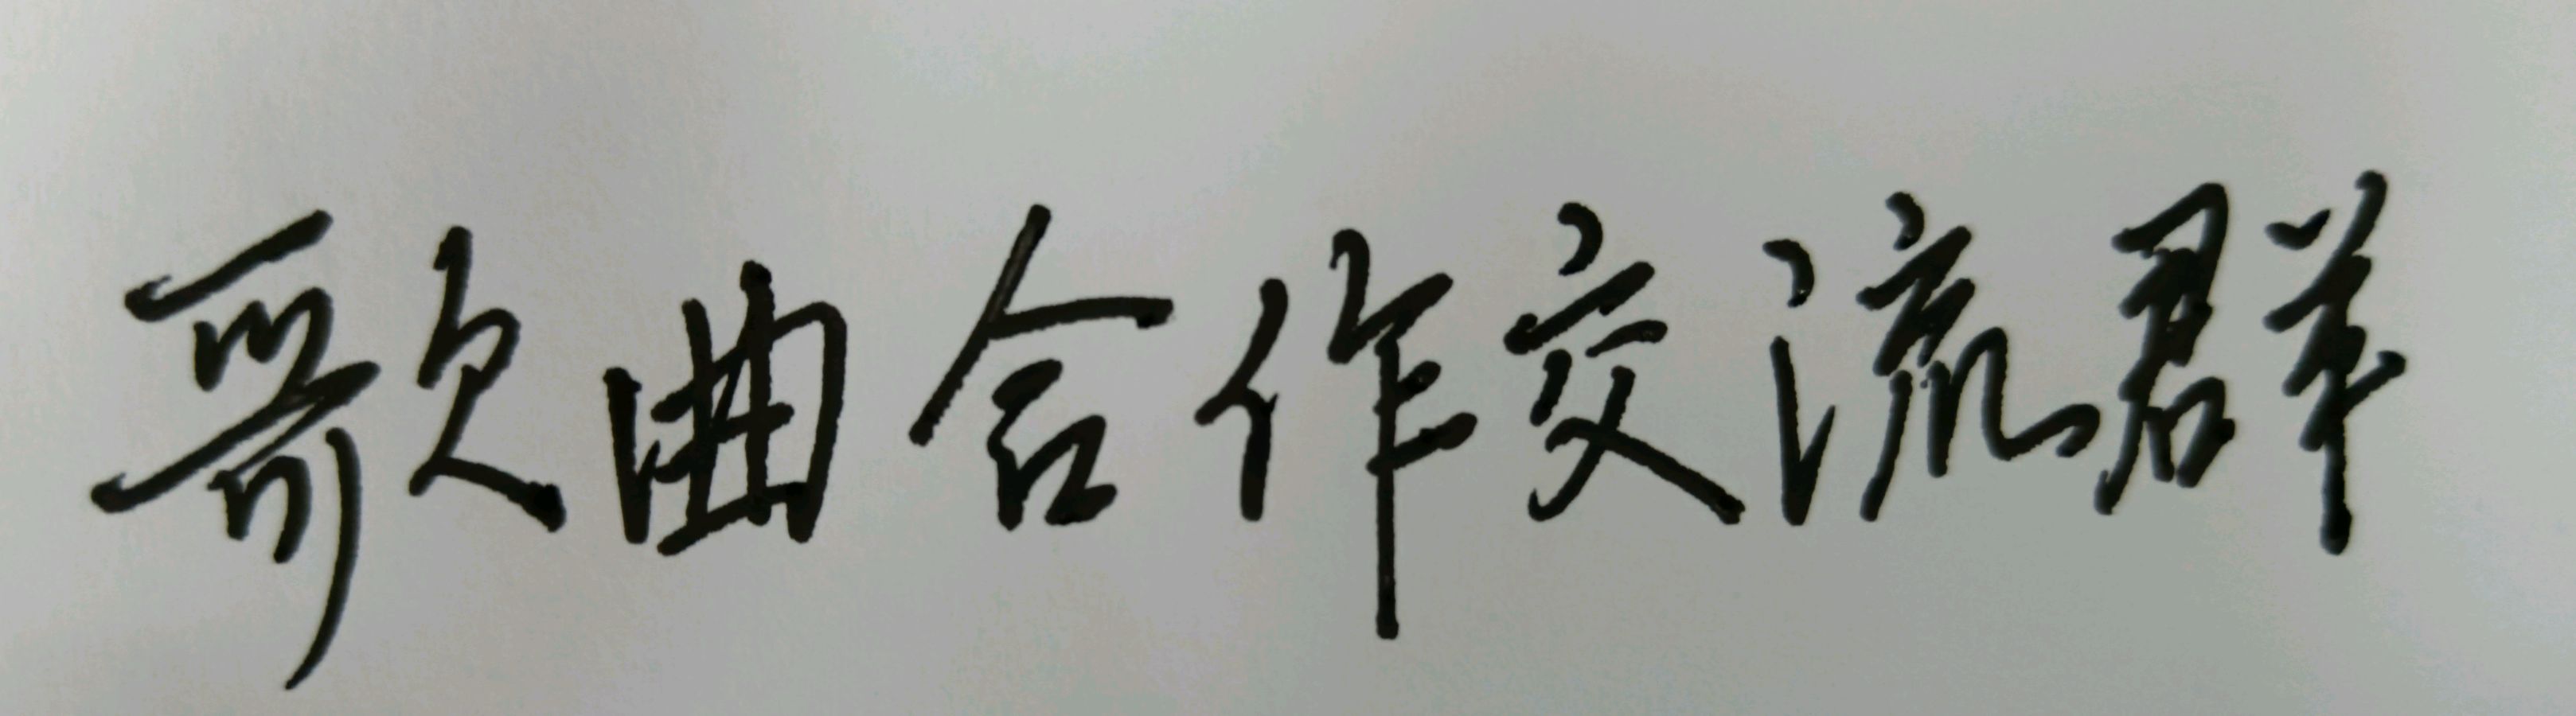 歌曲合作交流群